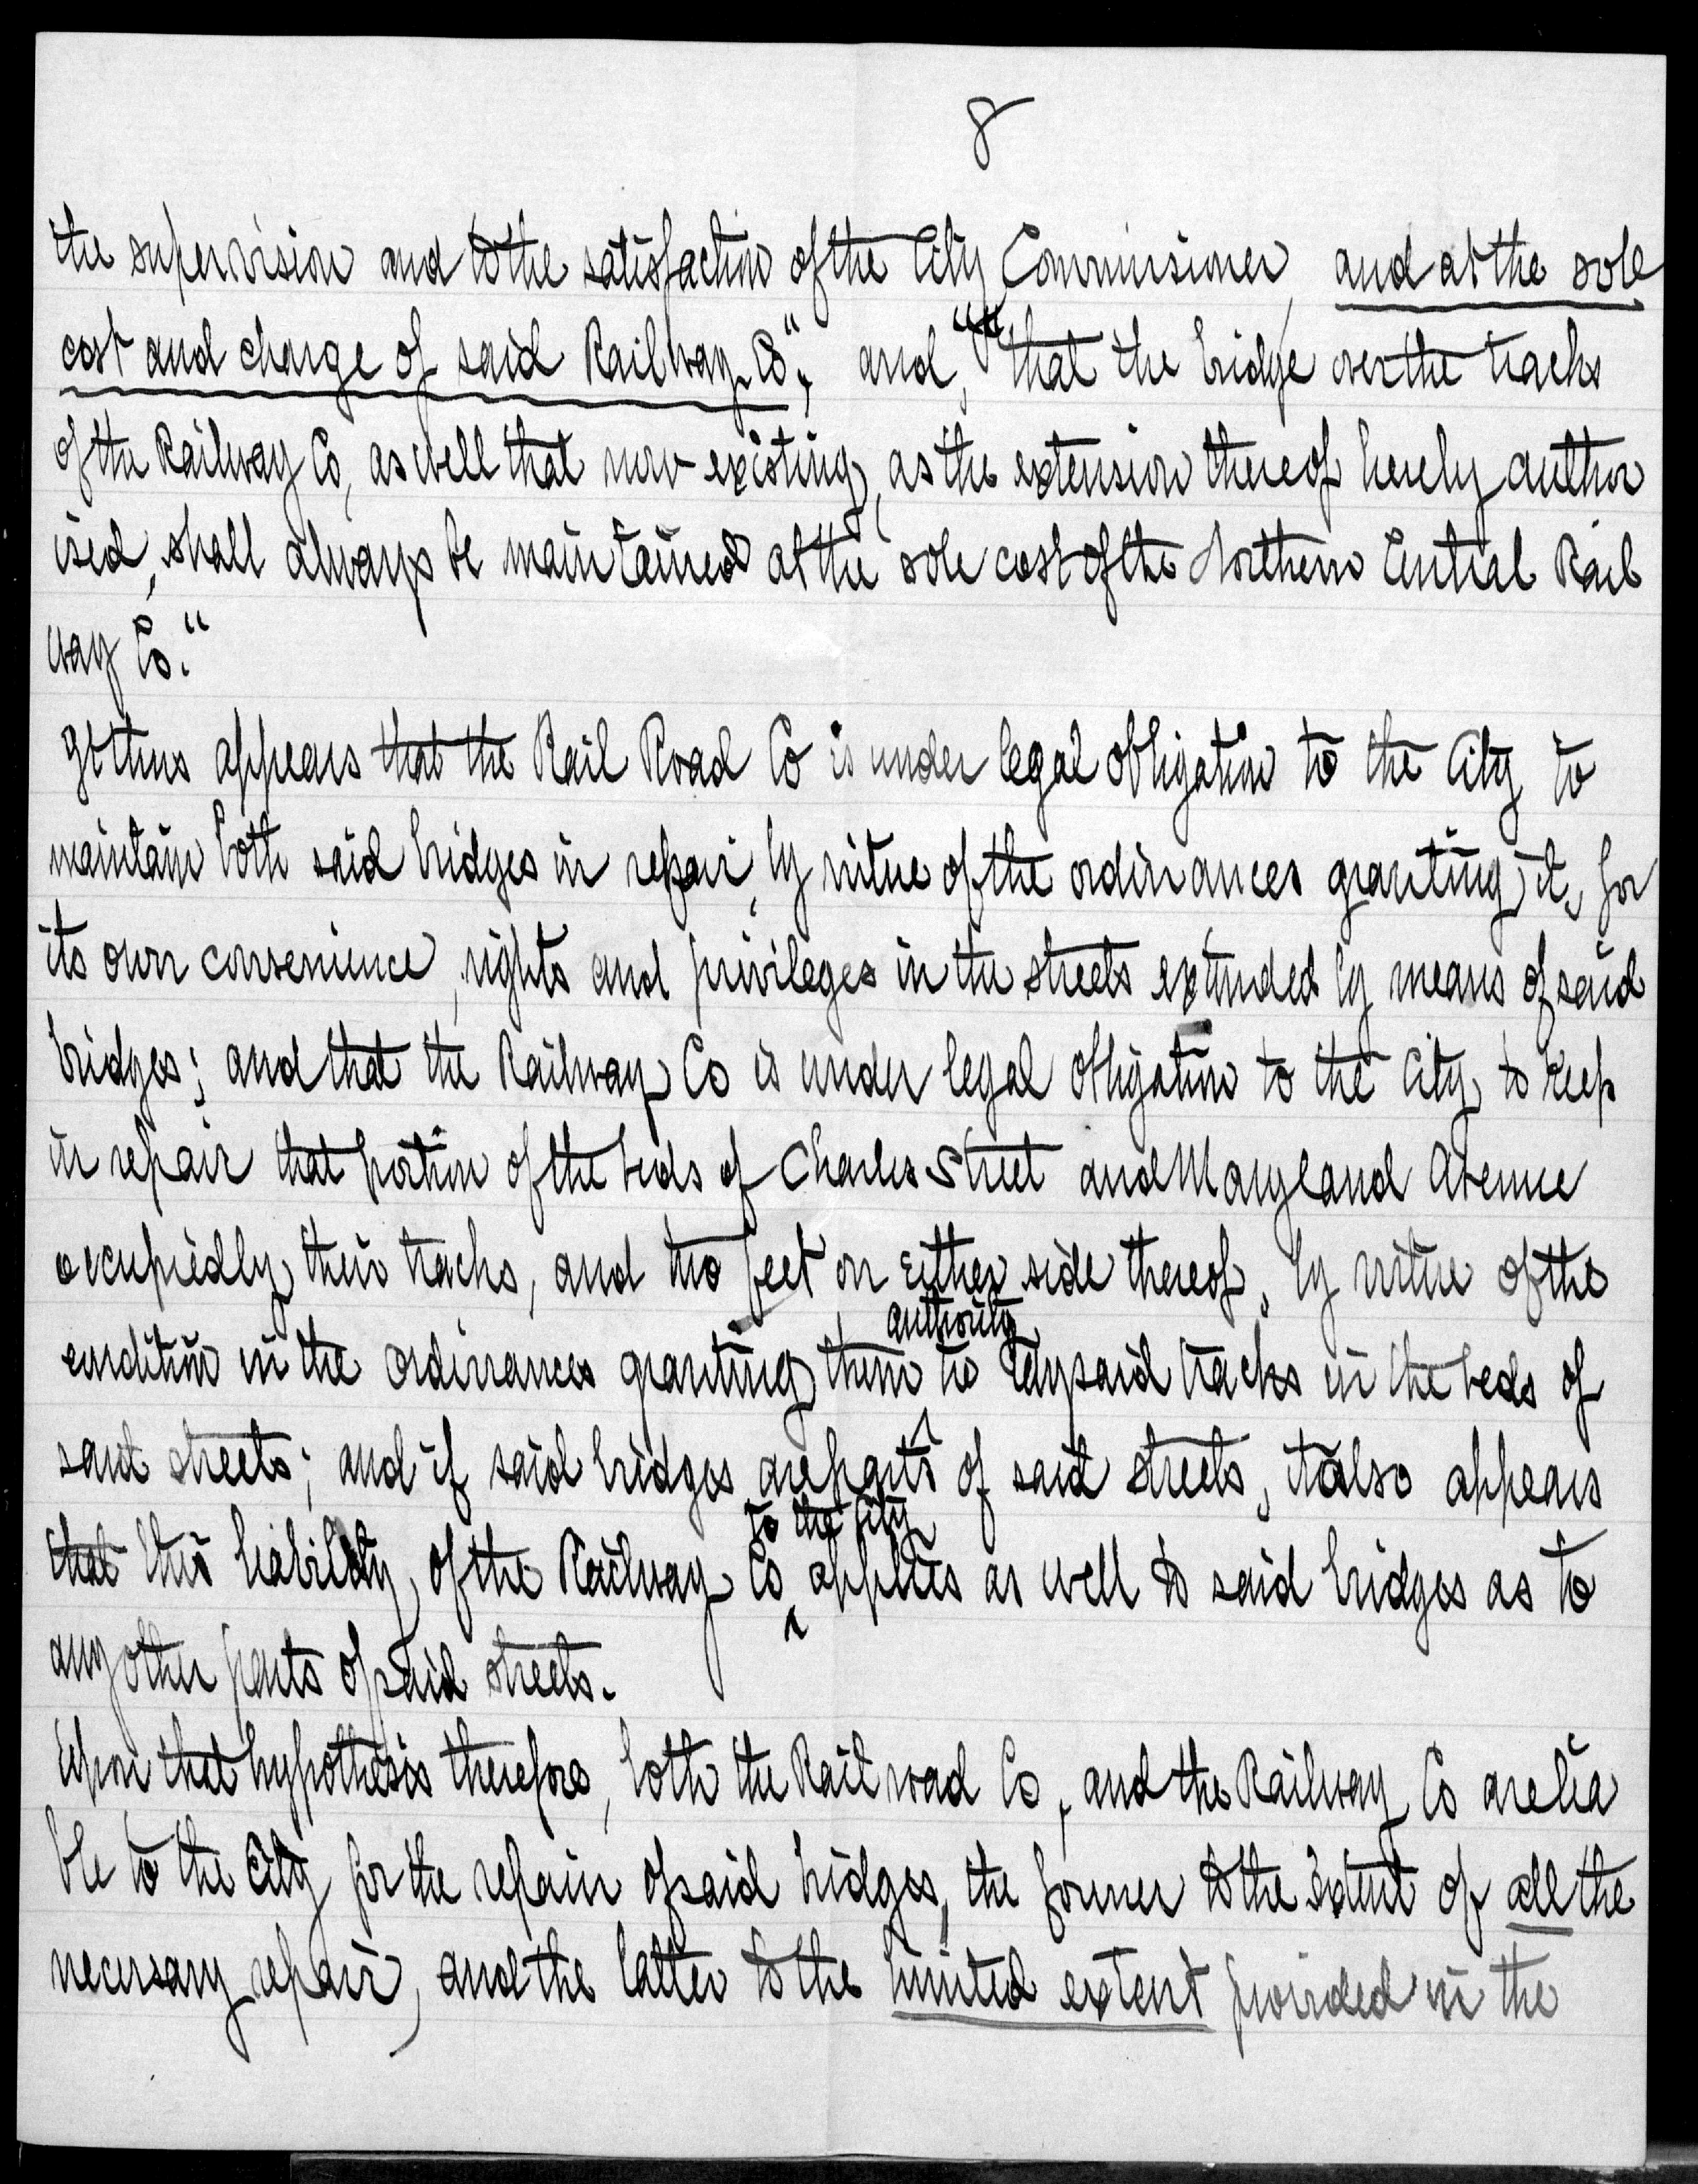 8
the supervision and to the satisfaction of the City Commissioner, and at the sole
cost and charge of said Railway Co", and, "that the bridge over the tracks
of the Railway Co, as well that now existing, as the extension thereof hereby author
ised, shall always be maintained at the sole cost of the Northern Central Rail
way Co."
It thus appears that the Rail Road Co is under legal obligation to the City to
maintain both said bridges in repair, by virtue of the ordinances granting it, for
its own convenience, rights and privileges in the streets extended by means of said
bridges; and that the Railway Co is under legal obligation to the City to keep
in repair that portion of the beds of Charles Street and Maryland Avenue
occupied by their tracks, and two feet on either side thereof, by virtue of the
condition in the ordinances granting them authority to lay said tracks in the beds of
said streets; and if said bridges are parts of said streets, it also appears
that this liability of the Railway Co to the City applies as well to said bridges as to
any other parts of said streets.
Upon that hypothesis therefore, both the Rail road Co, and the Railway Co are lia
ble to the City for the repair of said bridges, the former to the extent of all the
necessary repair, and the latter to the limited extent provided in the